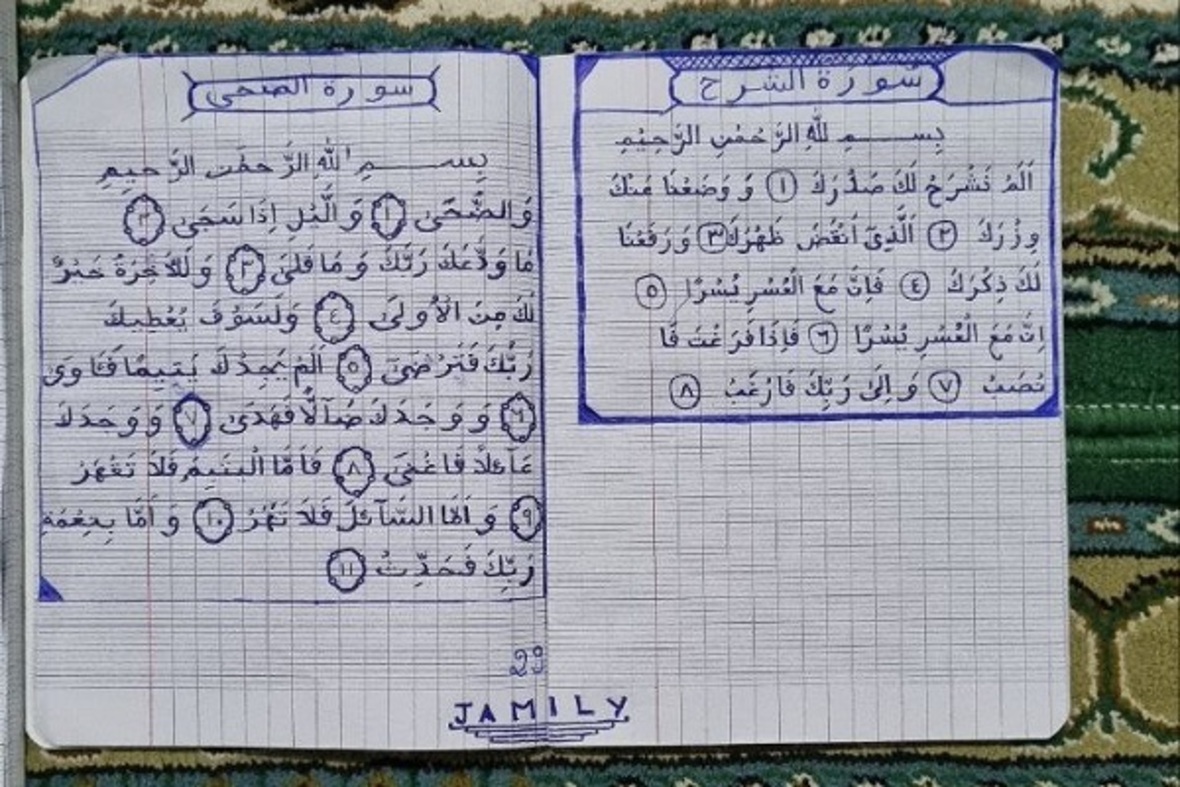 سورة الشرح
بِســــمِ للّٰهِ الرَّحْمٰنِ الرَّحِيْمِ
اَلَمْ نَشْرَحْ لَكَ صَدْرَكَ ١ وَ وَضَعْنَا عَنْكَ
وِزْرَكَ ٢ اَلَّذِىْ اَنْقَضَ ظَهْرَكَ ٣ وَرَفَعْنَا
لَكَ ذِكْرَكَ ٤ فَاِنَّ مَعَ الْعُسْرِ يُسْرًا ٥
اِنَّ مَعَ الْعُسْرِ يُسْرًا ٦ فَاِذَا فَرَغْتَ فَا
نْصَبْ ٧ وَ اِلٰى رَبِّكَ فَارْغَبْ ٨
سورة الضحى
بِســــمِ اللّٰهِ الرَّحمٰن الرَّحِيمِ
وَالضُّحَىٰ ١ وَ الَّيْلِ اِذَا سَجَىٰ ٢
مَا وَدَّعَكَ رَبُّكَ وَ مَا قَلَىٰ ٣ وَ لَلْاٰخِرَةُ خَيْرٌ
لَكَ مِنَ الْاُولَىٰ ٤ وَلَسَوْفَ يُعْطِيكَ
رَبُّكَ فَتَرْضَىٰ ٥ اَلَمْ يَجِدْكَ يَتِيمًا فَـَٔاوَىٰ
٦ وَ وَجَدَكَ ضَآلًّا فَهَدَىٰ ٧ وَ وَجَدَكَ
عَآئلاً فَاَغْنَىٰ ٨ فَاَمَّا الْيَتِيمَ فَلاَ تَقْهَرْ
٩ وَ اَمَّا السَّآئلَ فَلاَ تَنْهَرْ ١٠ وَ اَمَّا بِنِعْمَةِ
رَبِّكَ فَحَدِّثْ ١١
29
JAMILY